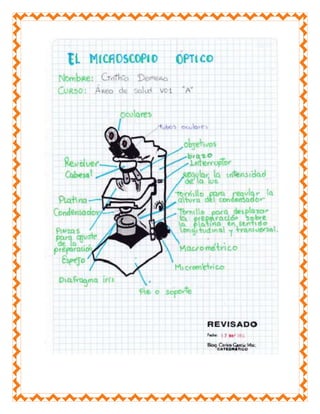 EL MICROSCOPIO ÓPTICO
Nombre: Cinthia Domena
Curso: Área de Salud V01 "A"
Oculares
Tubos oculares
Objetivos
brazo
Interruptor
Revólver
Cabezal
Regular la intensidad
de la luz
Platina
Tornillo para regular la
altura del condensador
Condensador
Tornillo para desplazar
la preparación sobre
la platina en sentido
longitudinal y transversal.
Pinzas
para ajuste
de la
preparación
Macrométrico
Espejo
Micrométrico
Diafragma iris
Pie o soporte
REVISADO
Fecha:
Bioq. Carlos García Msc.
CATEDRÁTICO